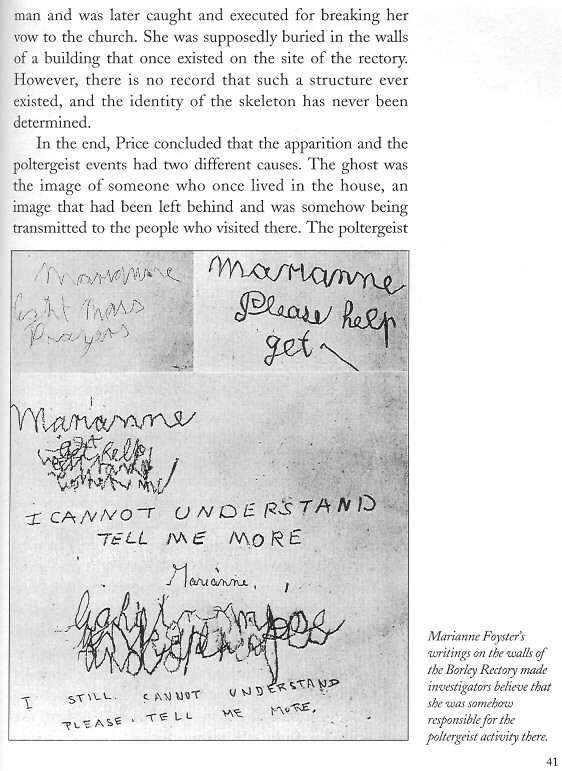 man and was later caught and executed for breaking her
vow to the church. She was supposedly buried in the walls
of a building that once existed on the site of the rectory.
However, there is no record that such a structure ever
existed, and the identity of the skeleton has never been
determined.
In the end, Price concluded that the apparition and the
poltergeist events had two different causes. The ghost was
the image of someone who once lived in the house, an
image that had been left behind and was somehow being
transmitted to the people who visited there. The poltergeist
Marianne
light mass
Prayers
Marianne
Please help
get
Marianne
get help
I CANNOT UNDERSTAND
TELL ME MORE
Marianne.
I STILL. CANNOT UNDERSTAND
PLEASE. TELL ME MORE.
Marianne Foyster's
writings on the walls of
the Borley Rectory made
investigators believe that
she was somehow
responsible for the
poltergeist activity there.
41